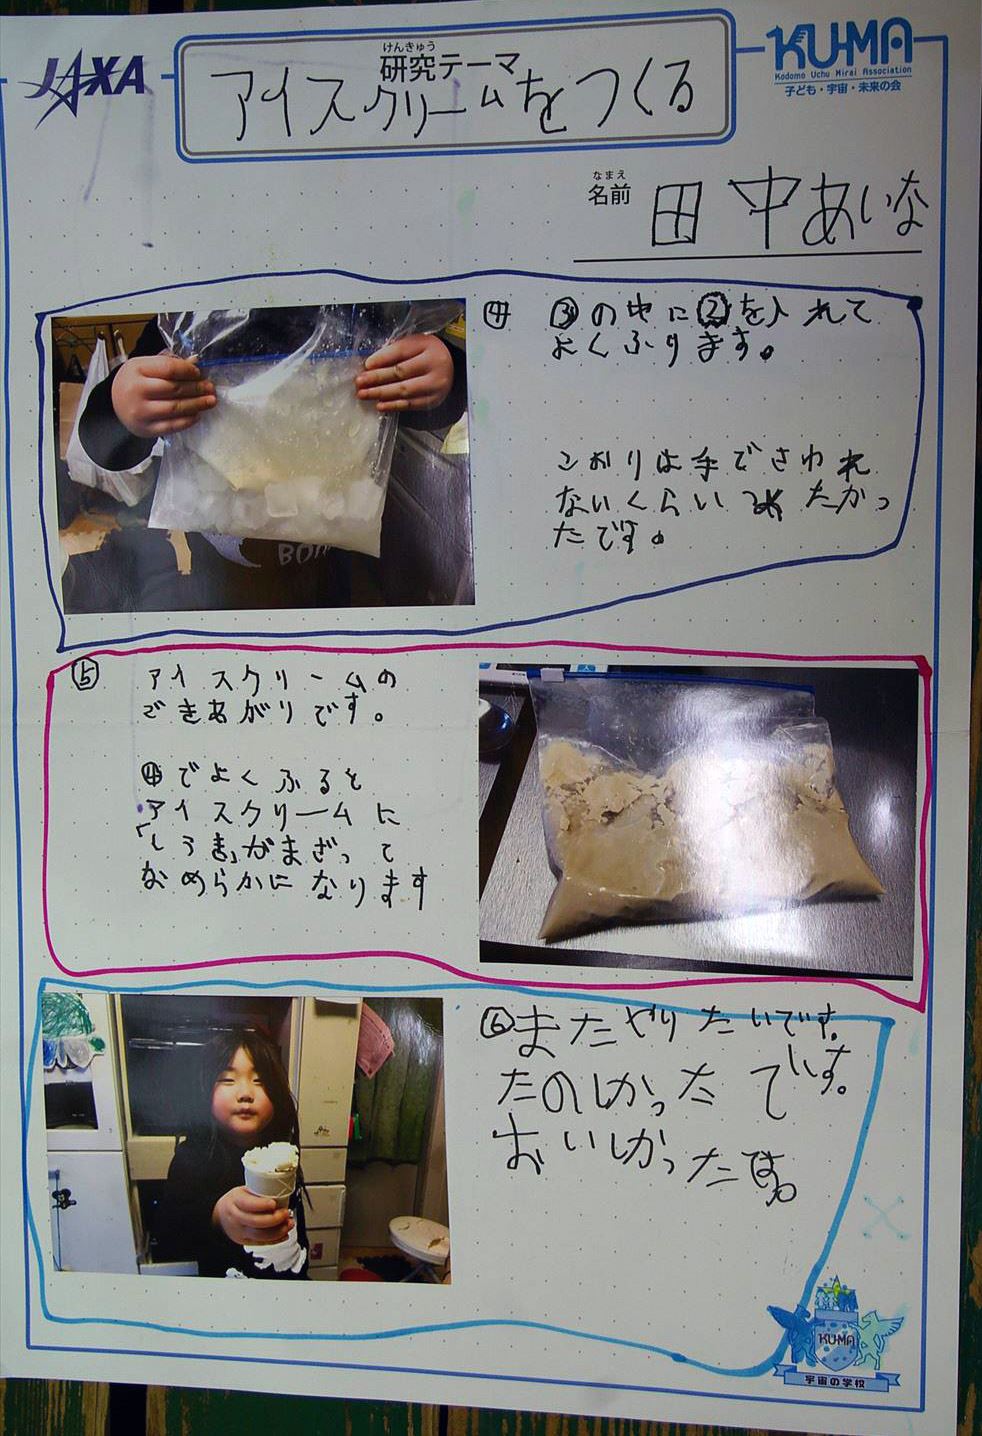 JAXA
けんきゅう
研究テーマ
アイスクリームをつくる
KU-MA
Kodomo Uchu Mirai Association
子ども・宇宙・未来の会
なまえ
名前
田中あいな
④ ③の中に②を入れて
よくふります。
こおりは手でさわれ
ないくらいつめたかっ
たです。
BO
⑤ アイスクリームの
できあがりです。
④でよくふると
アイスクリームに
「くうき」がまざって
なめらかになります
⑥またやりたいです。
たのしかったです。
おいしかったです。
KU-MA
宇宙の学校